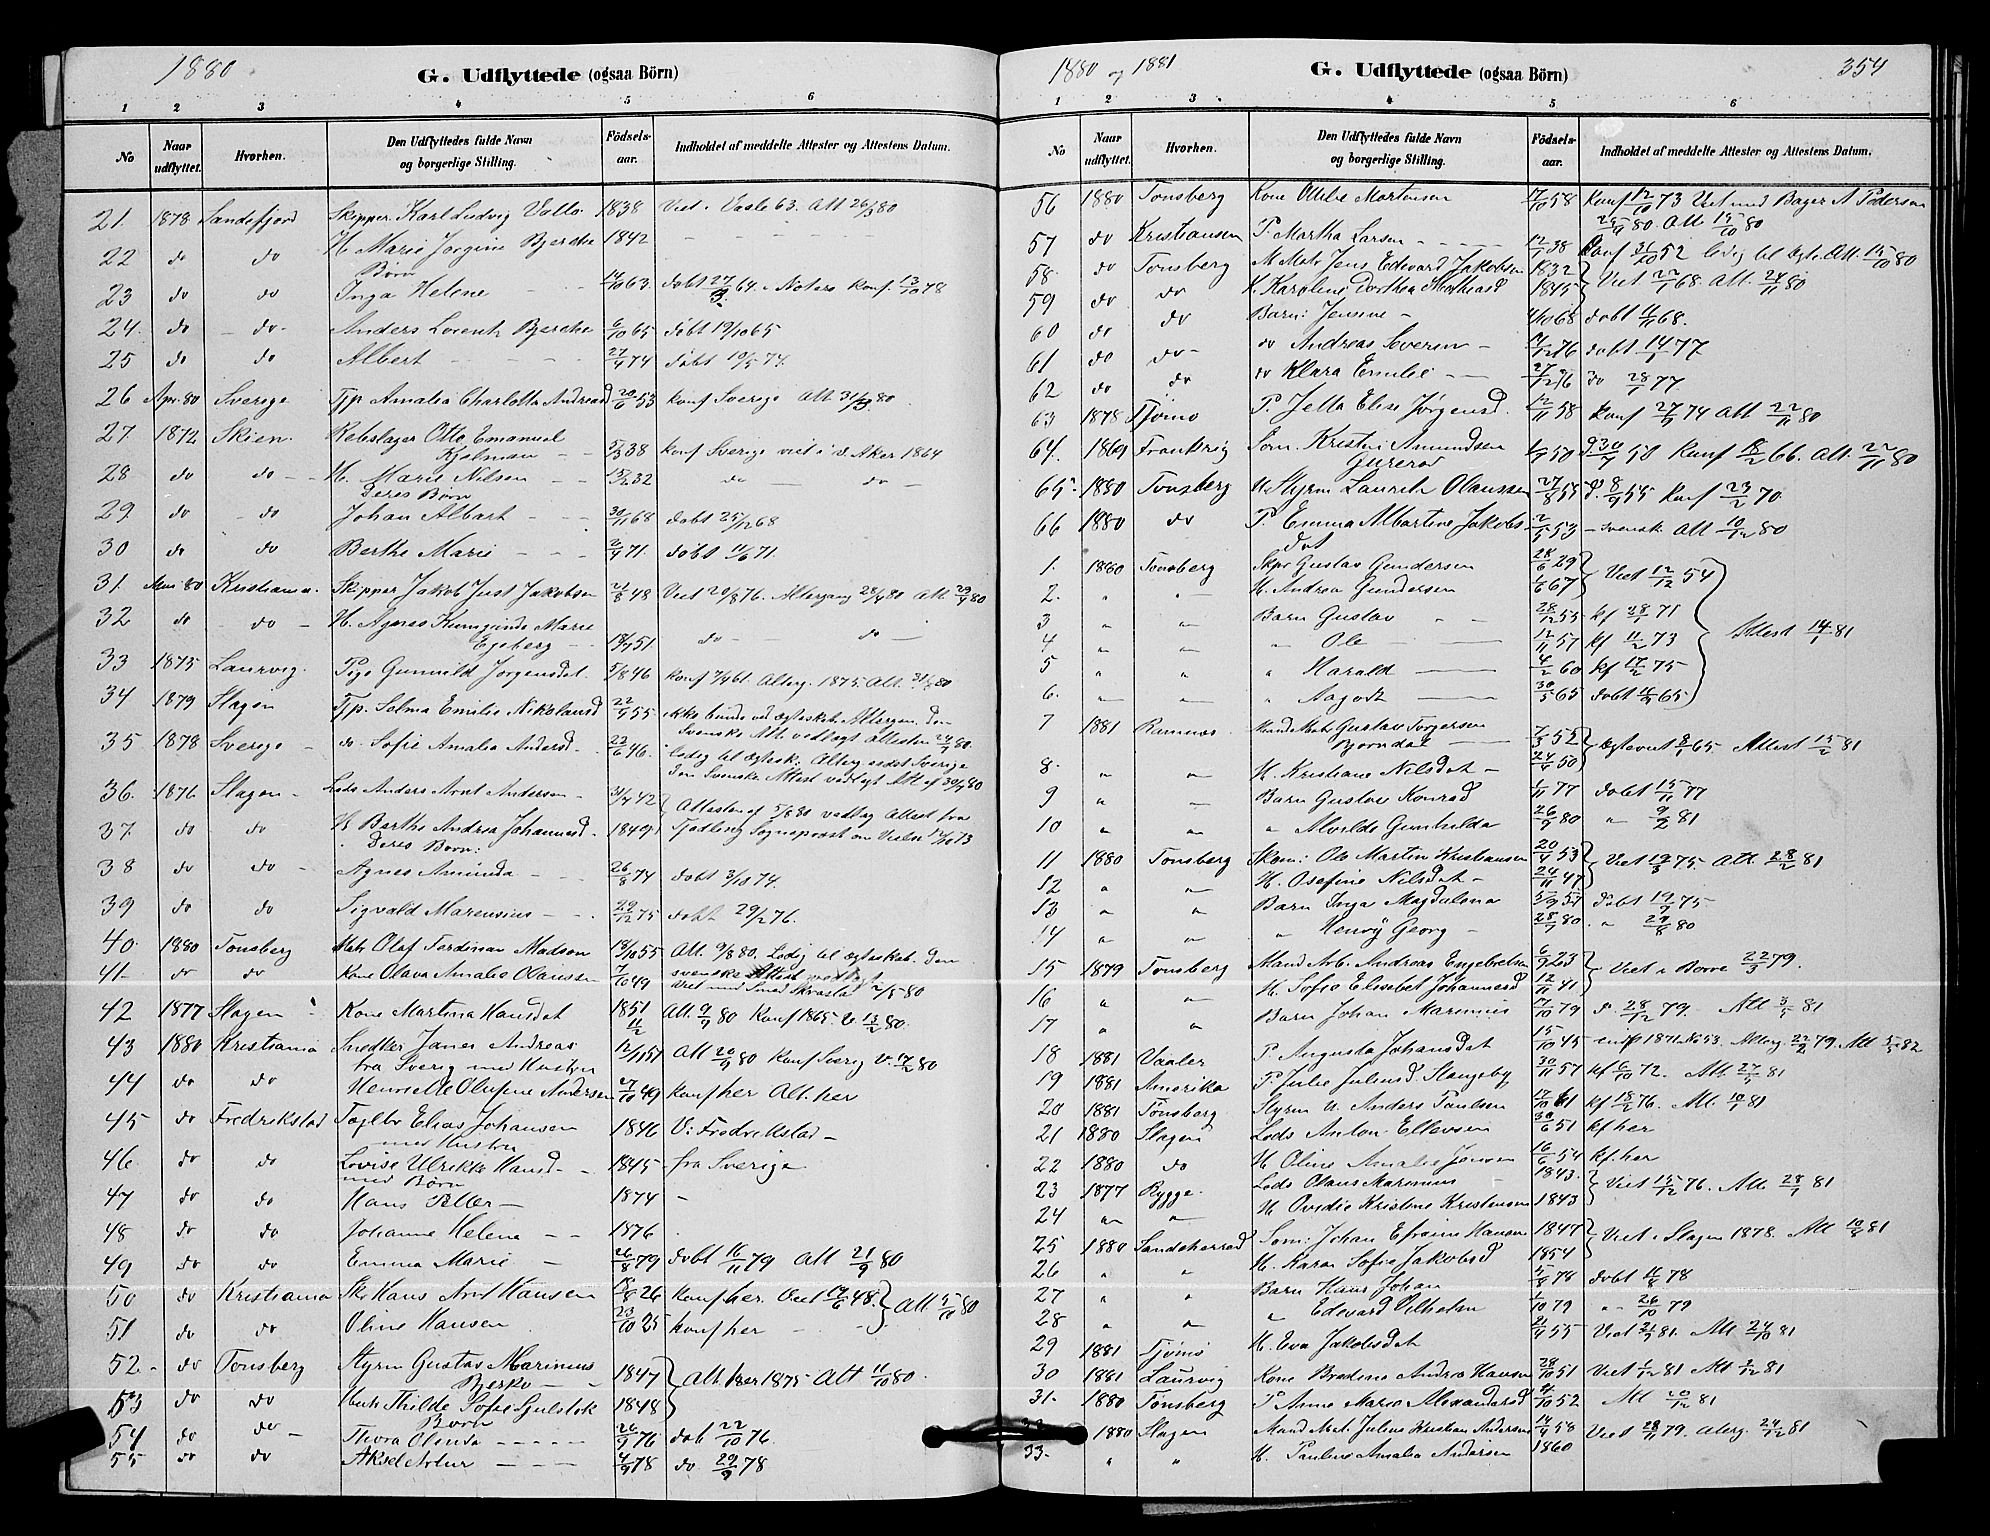 1880
G. Udflyttede (ogsaa Börn)
1 2 3 4 5 6
No Naar udflyttet. Hvorhen. Den Udflyttedes fulde Navn og borgerlige Stilling. Födselsaar. Indholdet af meddelte Attester og Attestens Datum.
21. 1878 Sandefjord Skipper Karl Ludvig Valle 1838 Viet i Vaale 63. Att 26/3 80
22 do do H. Marie Jorgine Bjerche 1842 — — —
Börn
23 do do Inga Helene 14/10 63. döbt 27/3 64 i Notero konf. 13/10 78
24. do do Anders Lorentz Bjerche 6/10 65 döbt 19/10 65
25 do do Albert 27/4 74 döbt 19/5 74.
26 Apr. 80 Sverige Tjp Amalia Charlotta Andreasd 20/6 53 konf Sverige Att. 31/3 80.
27. 1872 Skien Rebslager Otto Emanuel
Kjelman 5/3 38 konf Sverige viet i V. Aker 1864
28 do do H. Marie Nilsen 15/2 32 do do
Deres Börn
29 do do Johan Albert 30/11 68 döbt 25/12 68
30 do do Berthe Marie 2/4 71. döbt 11/6 71.
31. Mai 80 Kristiania Skipper Jakob Just Jakobsen 21/8 48 Viet 20/8 76. Altergang 28/4 80 Att 29/4 80
32 do do H. Agnes Kunigunde Marie
Egeberg 19/7 51 do do
33 1875 Laurvig. Pige Gunnild Jorgensdat. 5/8 46 konf 7/4 61. Alterg. 1875. Att. 31/5 80
34 1879 Slagen Tjp. Selma Emilie Nikolausd 22/9 55 ikke bunde ved Ægteskab. Altergan. Den
Svenske Att. vedlagt attesten 24/7 80.
35 1878 Sverige do. Sofie Amalia Andersd. 23/6 46. ledig til Ægtesk. Alterg. andet Sverige
den Svenske Attest vedlagt Att af 30/7 80
36. 1876 Slagen Lods Anders Arnt Andersen 31/7 42 Attesten af 5/8 80 vedlag Attest fra
37. do do H. Berthe Andrea Johannesd. 1849 Tjødling Sogneprest om Vielse 14/10 73
Deres Börn:
38 do do Agnes Aminda 26/8 74 döbt 3/10 74.
39 do do Sigvald Marensius 29/12 75 döbt 29/2 76.
40. 1880 Tonsberg Mats. Olaf Ferdinan Madsen 18/10 55 Att. 9/8 80. Ledig til Ægteskab. Den
41 do do Kone Olava Amalie Olaussen 7/10 49 svenske Attest vedlagt
viet med Smed Skrøsted 2/5 80
42 1877 Slagen Kone Martina Hansdat 1851 11/2 Att. 9/9 80 Konf 1865. V. 13/2 80.
43 1880 Kristiania Snedker Janes Andreas 12/11 51 Att 20/9 80 Konf Sverig V. 17/2 80
fra Sverig med Hustru
44 do do Henriette Olufine Andersen 27/11 49 konf her Att. her
45 do Fredrikstad Teglbr Elias Johansen 1846 V. i Fredrikstad
med Hustru
46. do do Lovise Ulrikke Hansd 1845 fra Sverige
med Börn
47 do do Hans Peller 1874 -
48 do do Johanne Helene 1876
49 do do Emma Marie 26/8 79 döbt 16/11 79 Att 21/9 80
50 do Kristiania Sk. Hans Arnt Hansen 18/8 26 konf her. Viet 19/6 48. Att. 5/10 80
51 do do Oline Hansen 23/10 25 konf her
52. do Tonsberg Styrm Gustav Marinius
Bjerkø 1847 Att. her 1875 Att 11/10 80.
53 do do Mathilde Sofie Gulstok 1848
Börn
54 do do Thora Olenda 26/9 76 döb 22/10 76.
55 do do Aksel Artur 4/9 78 do 29/9 78
1880 og 1881
G. Udflyttede (ogsaa Börn)
354
1 2 3 4 5 6
No Naar udflyttet. Hvorhen. Den Udflyttedes fulde Navn og borgerlige Stilling. Födselsaar. Indholdet af meddelte Attester og Attestens Datum.
56 1880 Tonsberg Kone Ottilie Mortensen 17/10 58 Konf 12/10 73 Viet med Bager A Pedersen
25/9 80. Att 15/10 80
57 do Kristiansen P. Martha Larsen 12/7 38 Konf 31/10 52 ledig til Ægte. Att. 15/10 80
58. do Tonsberg M Mats Jens Edevard Jakobsen 1832 Viet 22/1 68. Att. 24/11 80
59 do do H. Karoline Dorthea Mathiasd 1845
60 do do Barn: Jensine 4/10 68 döbt 11/11 68.
61 do do do Andreas Severin 9/12 76 döbt 14/1 77
62 do do do Klara Emilie 27/12 76 do 28/1 77
63 1878 Tjømø P. Jella Elise Jörgensd. 12/11 58 Konf 27/9 74 Att 22/11 80
64. 1869 Frankrig Søm. Kristin Amundsen
Gurerød 1/7 50 d. 30/7 50 Konf 18/2 66. Att. 22/11 80
65. 1880 Tonsberg U Styrm Lauritz Olaussen 27/8 55 d. 8/9 55 Konf 23/2 70
66 1880 do P. Emma Albertine Jakobs-
dat 2/5 53 svensk Att 10/12 80
1. 1880 Tonsberg Skpr Gustav Gundersen 28/6 29 Viet 12/12 54
2. " " H. Andrea Gundersen 1/6 67
3 " " Barn Gustav 28/12 55 kf 28/1 71 Attest 14/1 81
4 " " " Ole 12/11 57 kf 11/2 73
5 " " " Harald 4/2 60 kf 17/2 75
6. " " " Aagot 30/5 65 döbt 16/7 65
7 1881 Ramnæs Mand Mat Gustav Torgersen
Bjorndal 7/3 52 Ægteviet 8/1 65 Attest 15/2 81
8. " " H. Kristiane Nilsdat 24/4 50
9 " " Barn Gustav Konrad 1/11 77 döbt 15/11 77
10 " " " Alvilde Gunhilda 26/9 80 " 9/2 81
11 1880 Tonsberg Skom: Ole Martin Kristiansen 20/4 53 Viet 19/3 75. Att. 28/2 81
12 " " H. Osefine Nilsdat 24/11 47
13 " " Barn Inga Magdalena döbt 19/9 75
14 " " " Henry Georg 28/7 80 " 29/8 80
15 1879 Tonsberg Mand Arb. Andreas Engebretsen 6/9 23 Viet i Borre 22/3 79.
16 " " H. Sofie Elisabet Johannesd 12/11 41
17 " " Barn Johan Marinius 17/10 79 d. 28/12 79. Att 3/5 81
18 1881 Vaaler P. Augusta Johansdat 15/10 45 indf 1871 No 53. Alterg. 22/2 79. Att 5/5 82
19 1881 Amerika P. Julie Juliusd. Slangeby 30/11 57 kf 6/10 72. Att. 27/5 81
20 1881 Tønsberg Styrm U. Anders Paulsen 17/10 61 kf 18/2 76. Att. 10/1 81
21 1880 Slagen Lods Anton Ellevsen 30/6 51 kf her
22 1880 do H. Oline Amalie Jensen 16/6 54 kf. her
23 1877 Rygge. Lods Olaus Marinius 1843. Viet 15/12 76. Att. 28/1 81
24 " " H. Ovidie Kristine Kristensen 1843
25 1880 Sandeherred Søm: Johan Efraim Hansen 1847 Viet i Slagen 1878. Att 10/2 81
26 " " H. Karen Sofie Jakobsd 1854
27 " " Barn Hans Johan 5/8 78 döbt 11/8 78
28 " " " Edevard Vilhelm 1/10 79 " 26/10 79
29 1881 Tjømø H. Eva Jakobsdat 21/4 55 Viet 21/9 81. Att 24/10 81
30 1881 Laurvig Kone Bredine Andrea Hansen 28/10 51 Viet 1/12 81 Att 2/12 81
31. 1880 Tonsberg P Anne Marie Alexandersd 4/10 52 Att 20/12 81
32 1880 Slagen Mand Mat. Julius Kristian Andersen 14/4 58 Viet 28/11 79. Alterg. 24/12 81
33. " " H. Pauline Amalia Andersen 1860